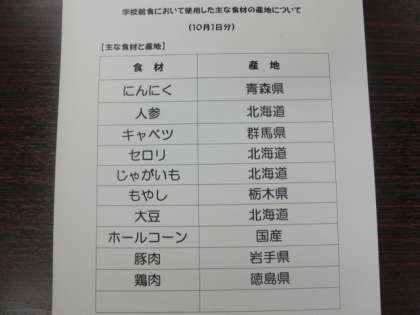 学校給食において使用した主な食材の産地について
(10月1日分)
【主な食材と産地】
食材 産地
にんにく 青森県
人参 北海道
キャベツ 群馬県
セロリ 北海道
じゃがいも 北海道
もやし 栃木県
大豆 北海道
ホールコーン 国産
豚肉 岩手県
鶏肉 徳島県